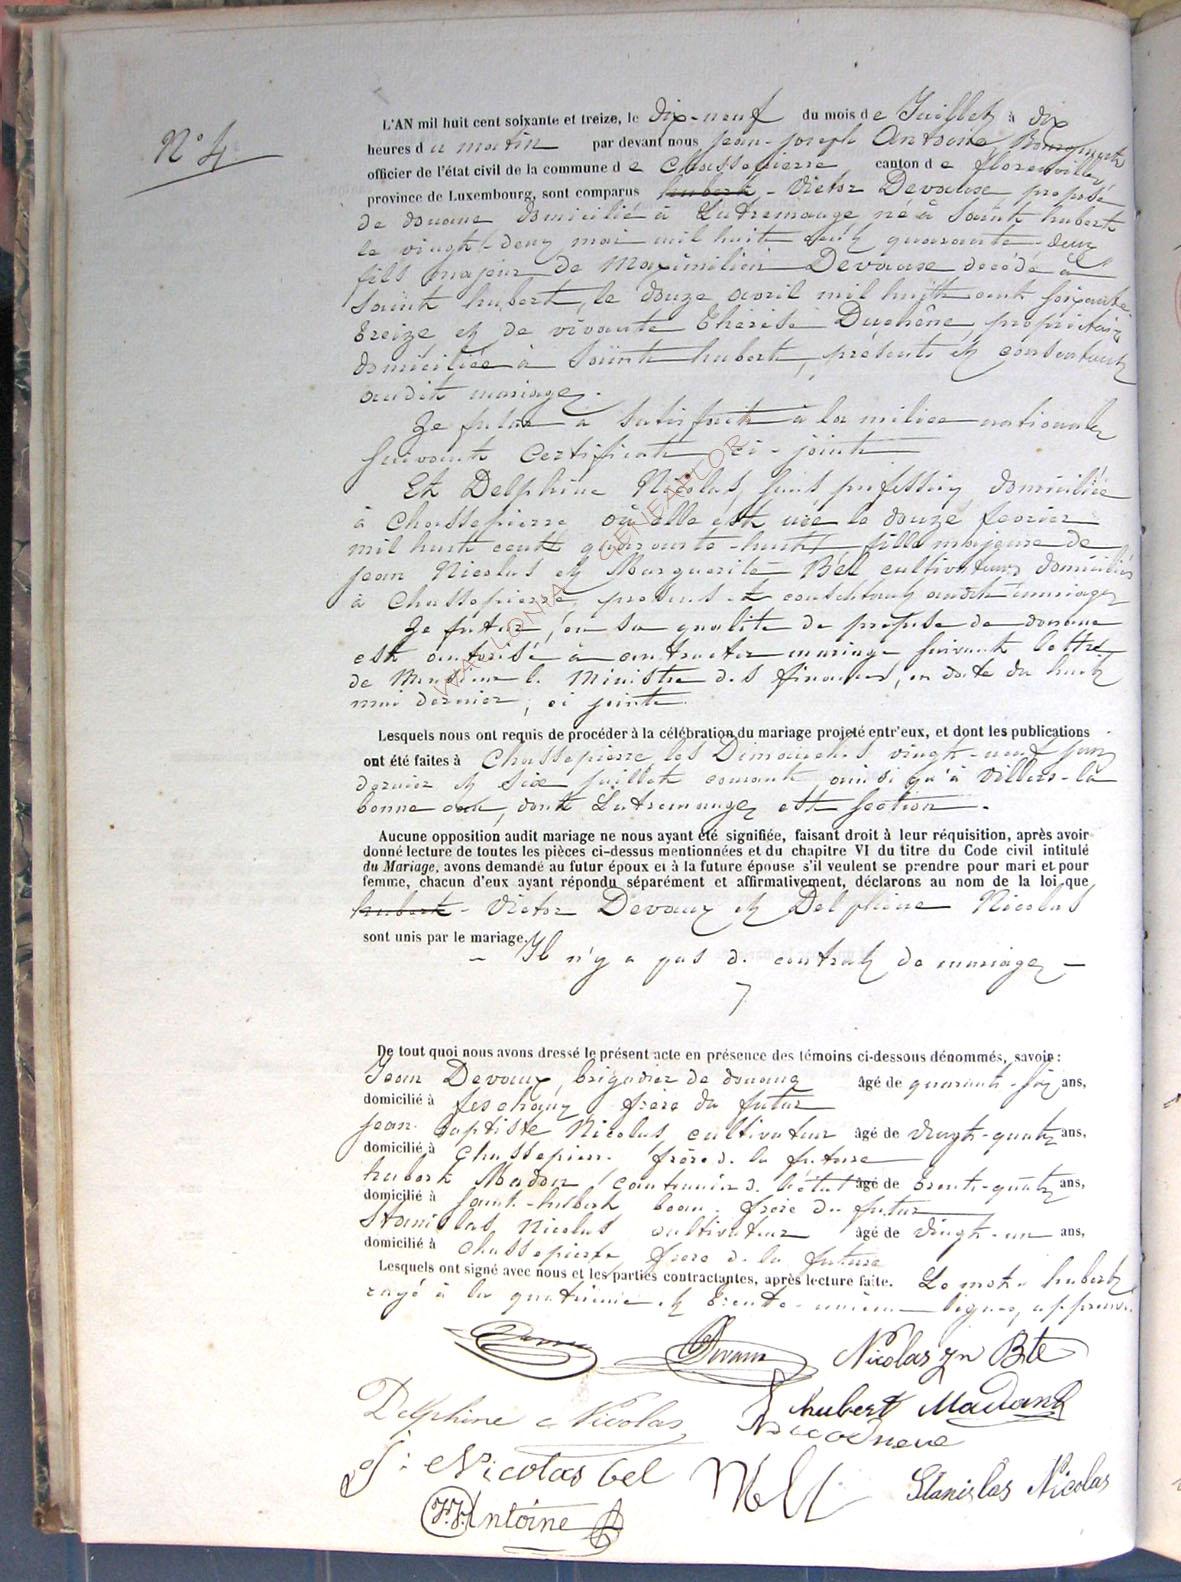 N° 4
L'AN mil huit cent soixante et treize, le dix-neuf du mois de Juillet à dix
heures du matin par devant nous jean-joseph Antoine Bourgmestre
officier de l'état civil de la commune de Chassepierre canton de florenville
province de Luxembourg, sont comparus hubert - Victor Devaux préposé
de douane domicilié à Lutremange né à Saint hubert
le vingt-deux mai mil huit cent quarante-deux
fils majeur de Maximilien Devaux décédé à
Saint hubert, le douze avril mil huit cent soixante
treize et de vivante Thérèse Duchêne, propriétaire
domiciliée à Saint hubert, présente et consentant
audit mariage.
Le futur a satisfait à la milice nationale
suivant certificat ci-joint
Et Delphine Nicolas, sans profession, domiciliée
à Chassepierre où elle est née le douze fevrier
mil huit cent quarante-huit, fille majeure de
jean Nicolas et Marguerite Bél cultivateurs domiciliés
à Chassepierre, présents et consentant audit mariage
Le futur, en sa qualité de préposé de douane
est autorisé à contracter mariage suivant lettre
de Monsieur le Ministre des finances, en date du huit
mai dernier, ci jointe.
Lesquels nous ont requis de procéder à la célébration du mariage projeté entr'eux, et dont les publications
ont été faites à Chassepierre les Dimanches vingt-neuf juin
dernier et six juillet courant ainsi qu'à Villers-la
bonne eau, dont Lutremange est section.
Aucune opposition audit mariage ne nous ayant été signifiée, faisant droit à leur réquisition, après avoir
donné lecture de toutes les pièces ci-dessus mentionnées et du chapitre VI du titre du Code civil intitulé
du Mariage, avons demandé au futur époux et à la future épouse s'il veulent se prendre pour mari et pour
femme, chacun d'eux ayant répondu séparément et affirmativement, déclarons au nom de la loi que
hubert - Victor Devaux et Delphine Nicolas
sont unis par le mariage.
Il n'y a pas de contrat de mariage
De tout quoi nous avons dressé le présent acte en présence des témoins ci-dessous dénommés, savoir :
Jean Devaux, brigadier de douane âgé de quarante-six ans,
domicilié à frère du futur
Jean Baptiste Nicolas cultivateur âgé de vingt-quatre ans,
domicilié à Chassepierre frère de la future
hubert Madan, âgé de trente-quatre ans,
domicilié à Saint-hubert beau-frère du futur
Stanislas Nicolas cultivateur âgé de vingt-un ans,
domicilié à Chassepierre frère de la future
Lesquels ont signé avec nous et les parties contractantes, après lecture faite. Le mot hubert
rayé à la quatrième et trente-unième lignes, approuvé
Devaux Nicolas Jn Bte
Delphine Nicolas hubert Madan
J: Nicolas bel Stanislas Nicolas
J.J. Antoine
WALLONIA GENEAPLOR